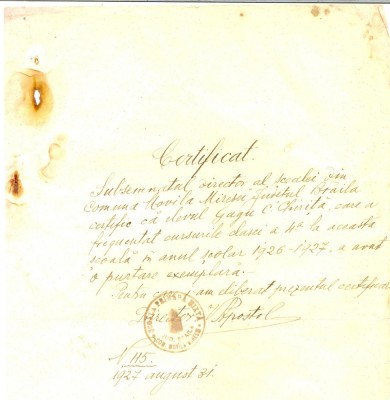 Certificat.
Subsemnatul, director al școalei din
comuna Movila Miresii județul Brăila
certific că elevul Gagu C. Chiriță, care a
frequentat cursurile clasei a 4ª la această
școală în anul școlar 1926-1927, a avut
o purtare exemplară.—
Pentru care am liberat prezentul certificat
Director Apostol
N 115.
1927 august 31.